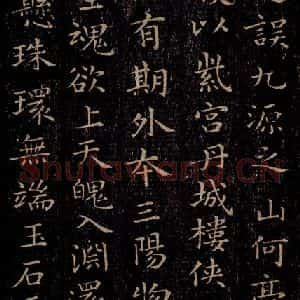 誤九源之山何亭
以紫宮丹城樓俠
有期外本三陽物
生魂欲上天魄入淵還
懸珠環無端玉石
Shufawang.CN